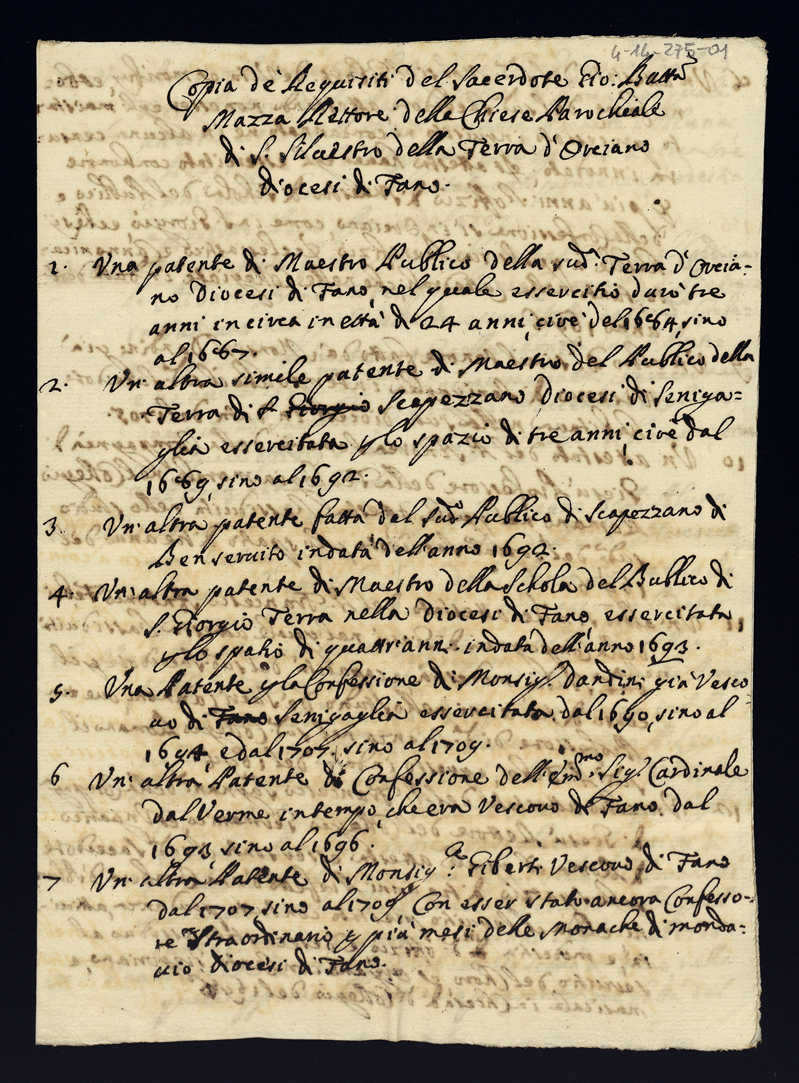 4-14-275-01
Copia de Requisiti del Sacerdote Gio: Batta
Mazza Rettore della Chiesa Parochiale
di S. Silvestro della Terra d'Orciano
Diocesi di Fano.
1. Una patente di Maestro Publico della sud.a Terra d'Orcia-
no Diocesi di Fano, nel quale essercitio durò tre
anni in circa in età di 24 anni, cioè del 1664, sino
al 1667.
2. Un' altra simile patente di Maestro del Publico della
Terra di S. Giorgio Scapezzano Diocesi di Seniga-
glia essercitata p lo spazio di tre anni, cioè dal
1689, sino al 1692.
3. Un' altra patente fatta del sud.o Publico di Scapezzano di
Benservito in data dell'anno 1692.
4. Un' altra patente di Maestro della Schola del Publico di
S. Giorgio Terra nella Diocesi di Fano essercitata
p lo spatio di quattr'anni. in data dell'anno 1693.
5. Una Patente p la Confessione di Monsig.r Dandini già Vesco
vo di Fano Senigaglia essercitata dal 1690, sino al
1694, e dal 1707. sino al 1709.
6 Un' altra Patente di Confessione dell'Em.mo Sig.r Cardinale
dal Verme in tempo, che era Vescovo di Fano dal
1693 sino al 1696.
7 Un' altra Patente di Monsig.r Giberti Vescovo di Fano
dal 1707 sino al 1709, Con esser stato ancora Confesso-
re Straordinario p più mesi delle Monache di Monda-
vio Diocesi di Fano.